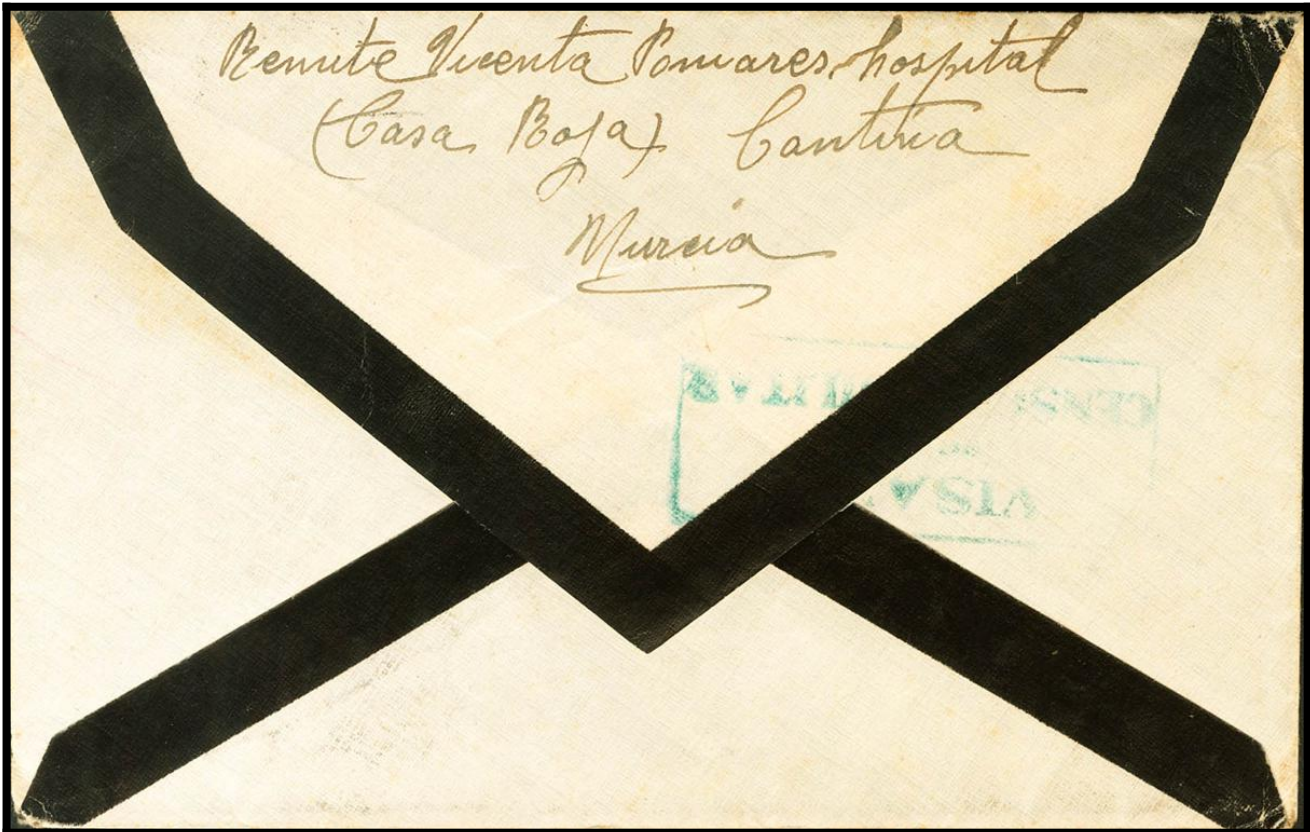 Remite Vicenta Pomares hospital
(Casa Roja) Cantina
Murcia
VISA
CENS MILITAR